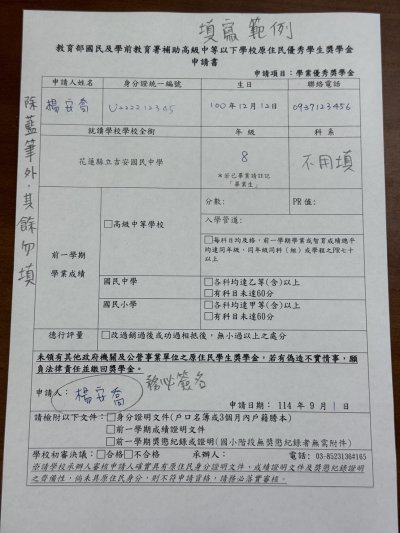 填寫範例
教育部國民及學前教育署補助高級中等以下學校原住民優秀學生獎學金
申請書
申請項目：學業優秀獎學金
申請人姓名 身分證統一編號 生日 聯絡電話
楊安喬 U222212345 100年12月12日 0937123456
就讀學校學校全銜 年級 科系
花蓮縣立吉安國民中學 8 不用填
*若已畢業請註記
「畢業生」
除藍筆外，其餘勿填
前一學期
學業成績
□高級中等學校
分數： PR值：
入學管道：
□每科目均及格，前一學期學業或智育成績總平均達同年級、同年級同科（組）或學程之PR七十以上
國民中學 □各科均達乙等(含)以上
□有科目未達60分
國民小學 □各科均達甲等(含)以上
□有科目未達60分
德行評量 □改過銷過後或功過相抵後，無小過以上之處分
未領有其他政府機關及公營事業單位之原住民學生獎學金，若有偽造不實情事，願
負法律責任並繳回獎學金。
申請人： 楊安喬 務必簽名
申請日期： 114 年 9 月 1 日
請檢附以下文件：□身分證明文件(戶口名簿或3個月內戶籍謄本)
□前一學期成績證明文件
□前一學期獎懲紀錄或證明(國小階段無獎懲紀錄者無需附件)
學校初審決議：□合格□不合格 承辦人： 電話：03-8523136#165
※請學校承辦人審核申請人確實具有原住民身分證明文件，或成績證明文件及獎懲紀錄證明
之齊備性，尚未具原住民身分，則不符申請資格，請務必落實審核。